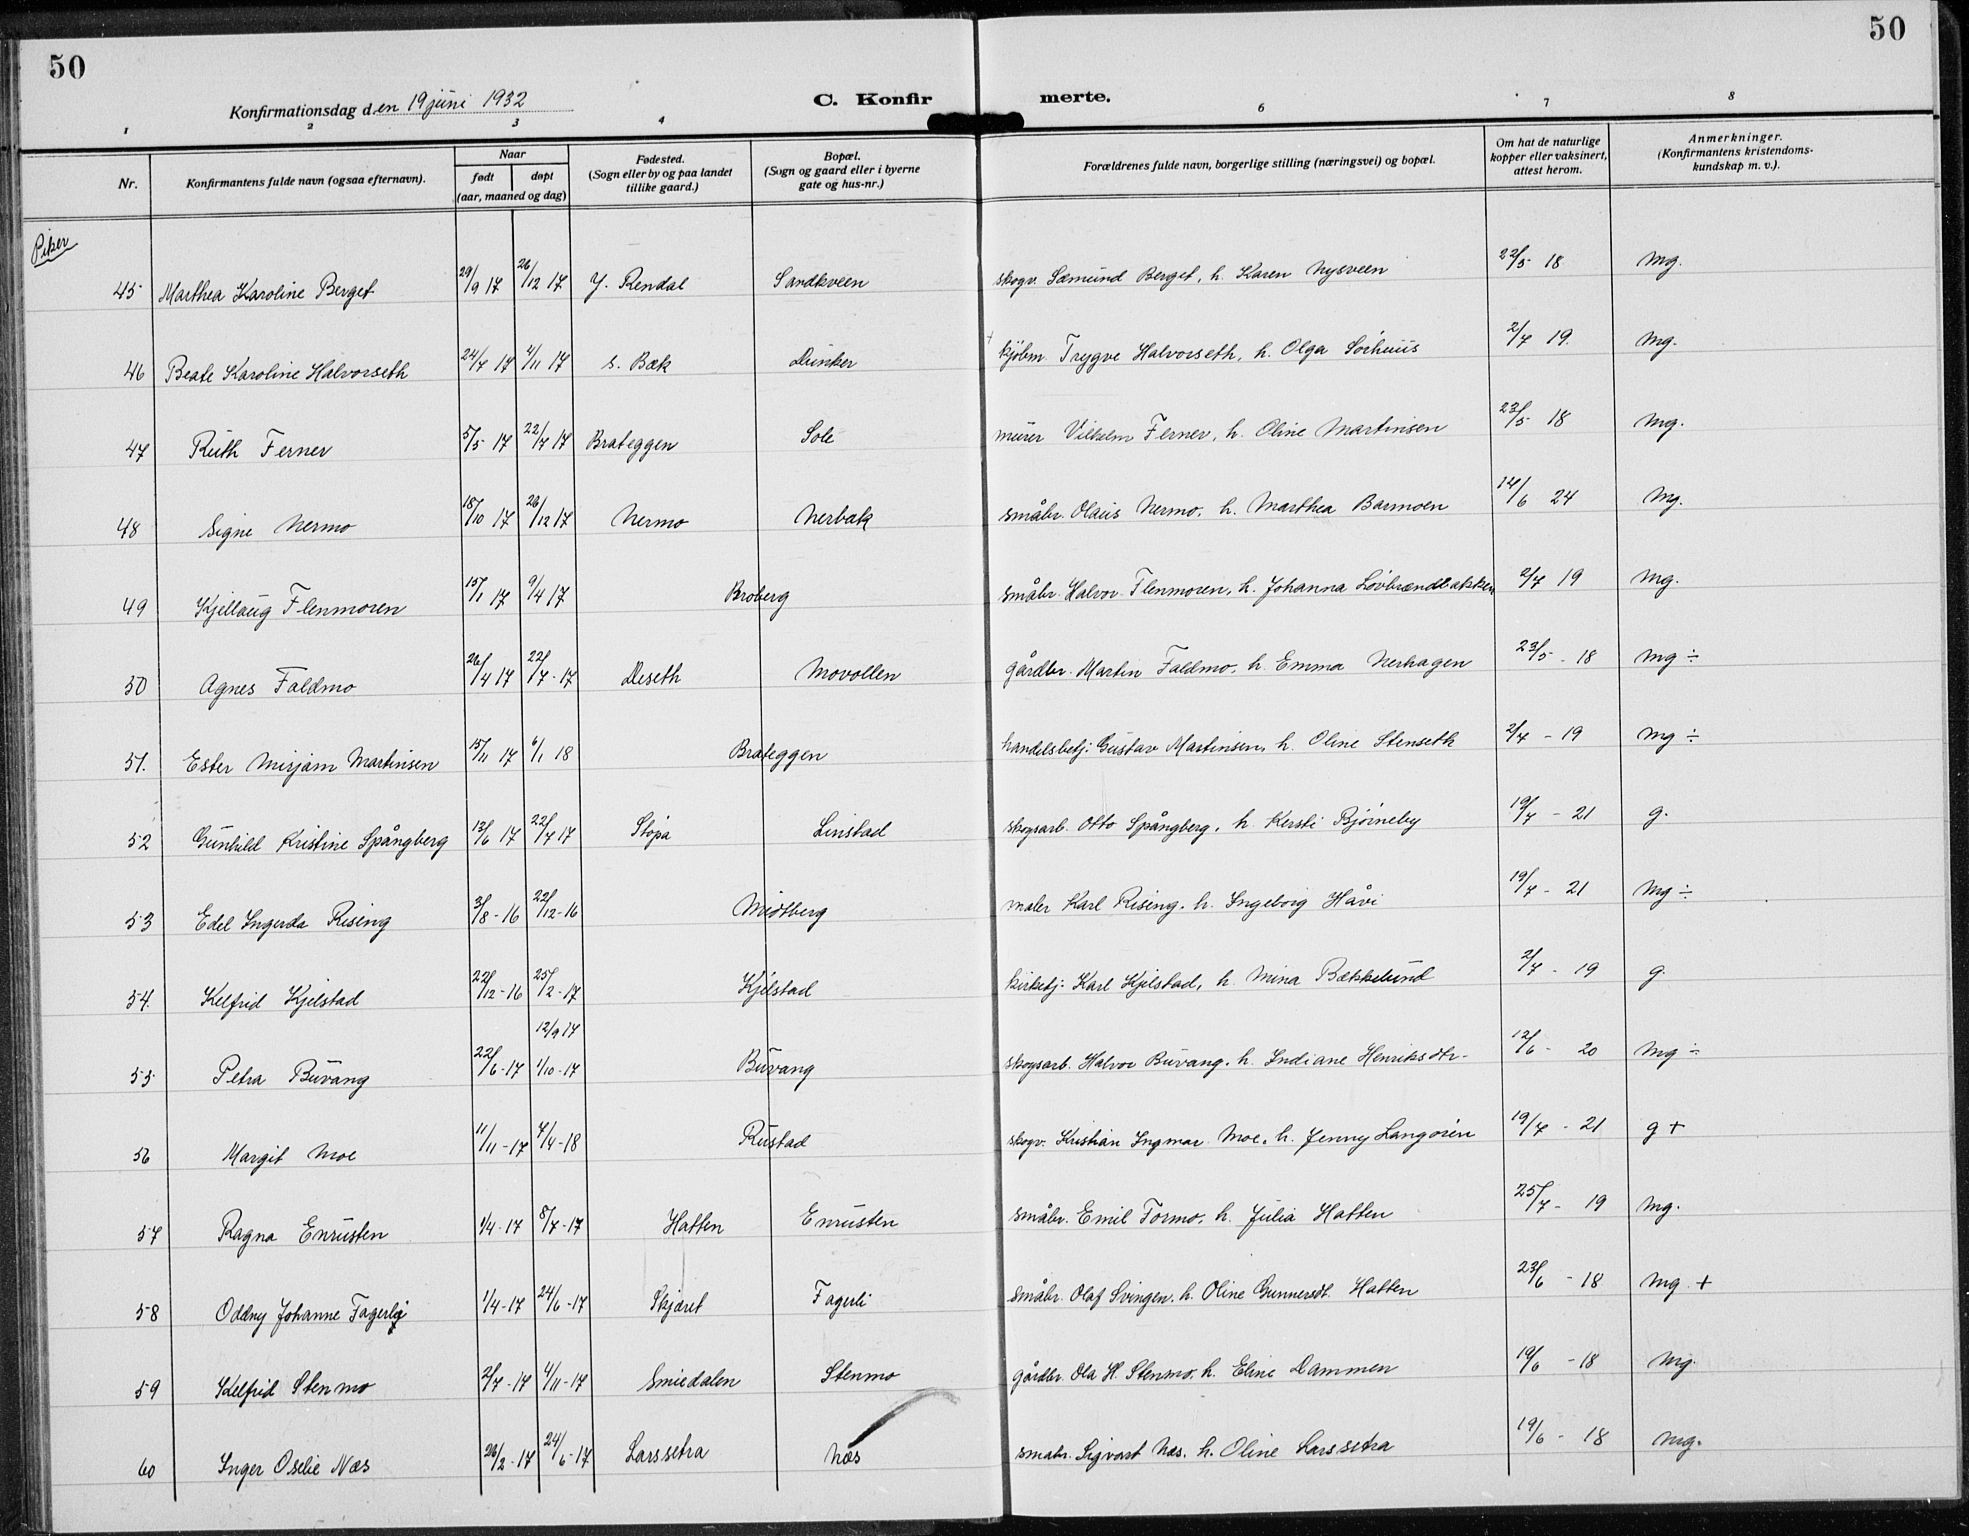 50
50
Konfirmationsdag den 19 juni 1932
C. Konfirmerte.
1 2 3 4 6 7 8
Nr. Konfirmantens fulde navn (ogsaa efternavn). Naar født døpt (aar, maaned og dag) Fødested. (Sogn eller by og paa landet tillike gaard.) Bopæl. (Sogn og gaard eller i byerne gate og hus-nr.) Forældrenes fulde navn, borgerlige stilling (næringsvei) og bopæl. Om hat de naturlige kopper eller vaksinert, attest herom. Anmerkninger. (Konfirmantens kristendoms-kundskap m. v.).
Piker
45 Marthea Karoline Berget 29/9 17 26/12 17 Y. Rendal Sandkveen skogv. Sæmund Berget, h. Karen Nysveen 22/5 18 Mg.
46 Beate Karoline Halvorseth 24/7 17 4/11 17 s. Bæk Dunker kjøbm. Trygve Halvorseth, h. Olga Sørhuus 2/7 19. Mg.
47 Ruth Ferner 5/5 17 22/7 17 Brateggen Sole murer Vilhelm Ferner, h. Oline Martinsen 23/5 18 Mg.
48 Signe Nermo 18/10 17 26/12 17 Nermo Nerbæk småbr. Olaus Nermo, h. Marthea Barmoen 12/6 24 Mg.
49 Kjellaug Flenmoren 15/1 17 9/4 17 Broberg småbr. Halvor Flenmoren, h. Johanna Løvbrændbakken 2/7 19 Mg.
50 Agnes Faldmo 26/4 17 22/7 - 17 Deseth Movollen gårdbr. Martin Faldmo, h. Emma Nerhagen 23/5 - 18 Mg ÷
51. Ester Mirjam Martinsen 15/11 17 6/1 18 Brateggen handelsbetj. Gustav Martinsen, h. Oline Stenseth 2/7 - 19 Mg ÷
52 Gunhild Kristine Spångberg 13/6 17 22/7 17 Støpa Linstad skogsarb. Otto Spångberg, h. Kersti Bjørneby 19/7 - 21 g.
53 Edel Ingerda Rising 3/8 - 16 22/12 - 16 Midtberg maler Karl Rising. h. Ingeborg Håvi 19/7 - 21 Mg ÷
54. Kelfrid Kjelstad 22/12 - 16 25/2 - 17 Kjelstad kirketj. Karl Kjelstad, h. Mina Bækkelund 2/7 - 19 g.
12/9 17
55 Petra Buvang 22/6 - 17 1/10 - 17 Buvang skogsarb. Halvor Buvang. h. Indiane Henriksdtr. 12/6 - 20 Mg ÷
56 Margit Moe 11/11 - 17 7/4 - 18 Rustad skogv. Kristian Ingmar Moe, h. Jenny Langøien 19/7 - 21 g +
57 Ragna Enrusten 1/4 - 17 8/7 - 17 Hatten Enrusten småbr. Emil Formo, h. Julia Hatten 25/7 - 19 Mg.
58 Oddny Johanne Fagerli 1/4 - 17 24/6 - 17 Skjæret Fagerli småbr. Olaf Svingen. h. Oline Gunnersdt. Hatten 23/6 - 18 Mg. +
59 Kelfrid Stenmo 2/7 - 17 4/11 - 17 Smiedalen Stenmo gårdbr. Ola H. Stenmo, h. Eline Dammen 19/6 - 18 Mg.
60 Inger Oselie Næs 26/2 - 17 24/6 - 17 Larssetra Næs småbr. Sigvart Næs, h. Oline Larssetra 19/6 - 18 Mg.